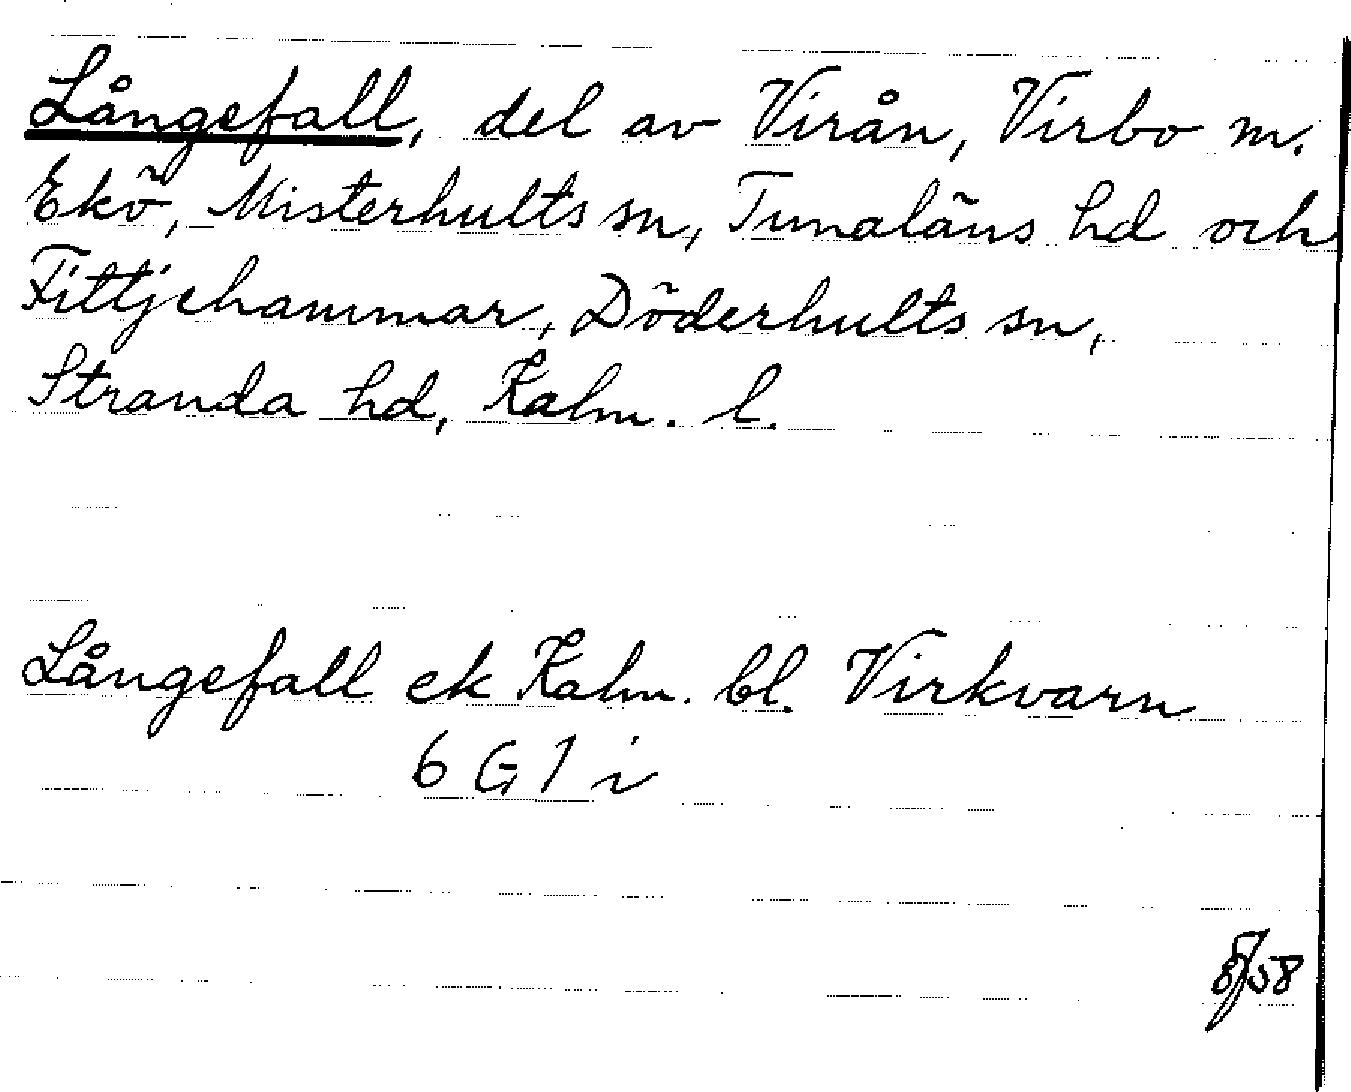 Långefall, del av Virån, Virbo m.
Ekö, Misterhults sn, Tunaläns hd och
Fittjehammar, Döderhults sn,
Stranda hd, Kalm. l.
Långefall ek Kalm. bl. Virkvarn
6 G 1 i